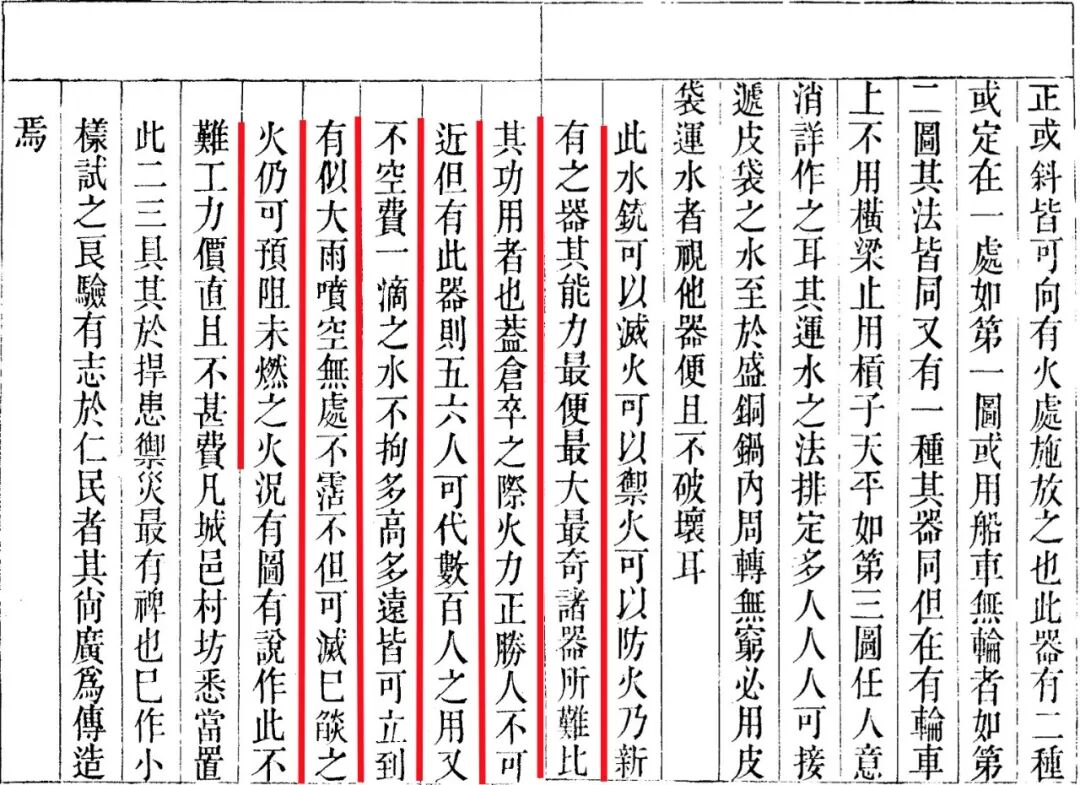 正或斜皆可向有火處施放之也此器有二種
或定在一處如第一圖或用船車無輪者如第
二圖其法皆同又有一種其器同但在有輪車
上不用橫梁止用槓子天平如第三圖任人意
消詳作之耳其運水之法排定多人人人可接
遞皮袋之水至於盛銅鍋內周轉無窮必用皮
袋運水者視他器便且不破壞耳
此水銃可以滅火可以禦火可以防火乃新
有之器其能力最便最大最奇諸器所難比
其功用者也葢倉卒之際火力正勝人不可
近但有此器則五六人可代數百人之用又
不空費一滴之水不拘多高多遠皆可立到
有似大雨噴空無處不霑不但可滅巳燄之
火仍可預阻未燃之火況有圖有說作此不
難工力價直且不甚費凡城邑村坊悉當置
此二三具其於捍患禦災最有裨也巳作小
樣試之良驗有志於仁民者其尚廣爲傳造
焉